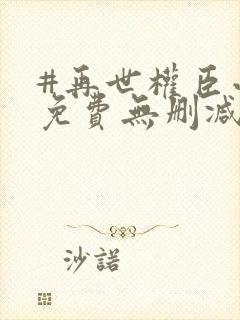 #再世權臣
免費無刪減
沙諾